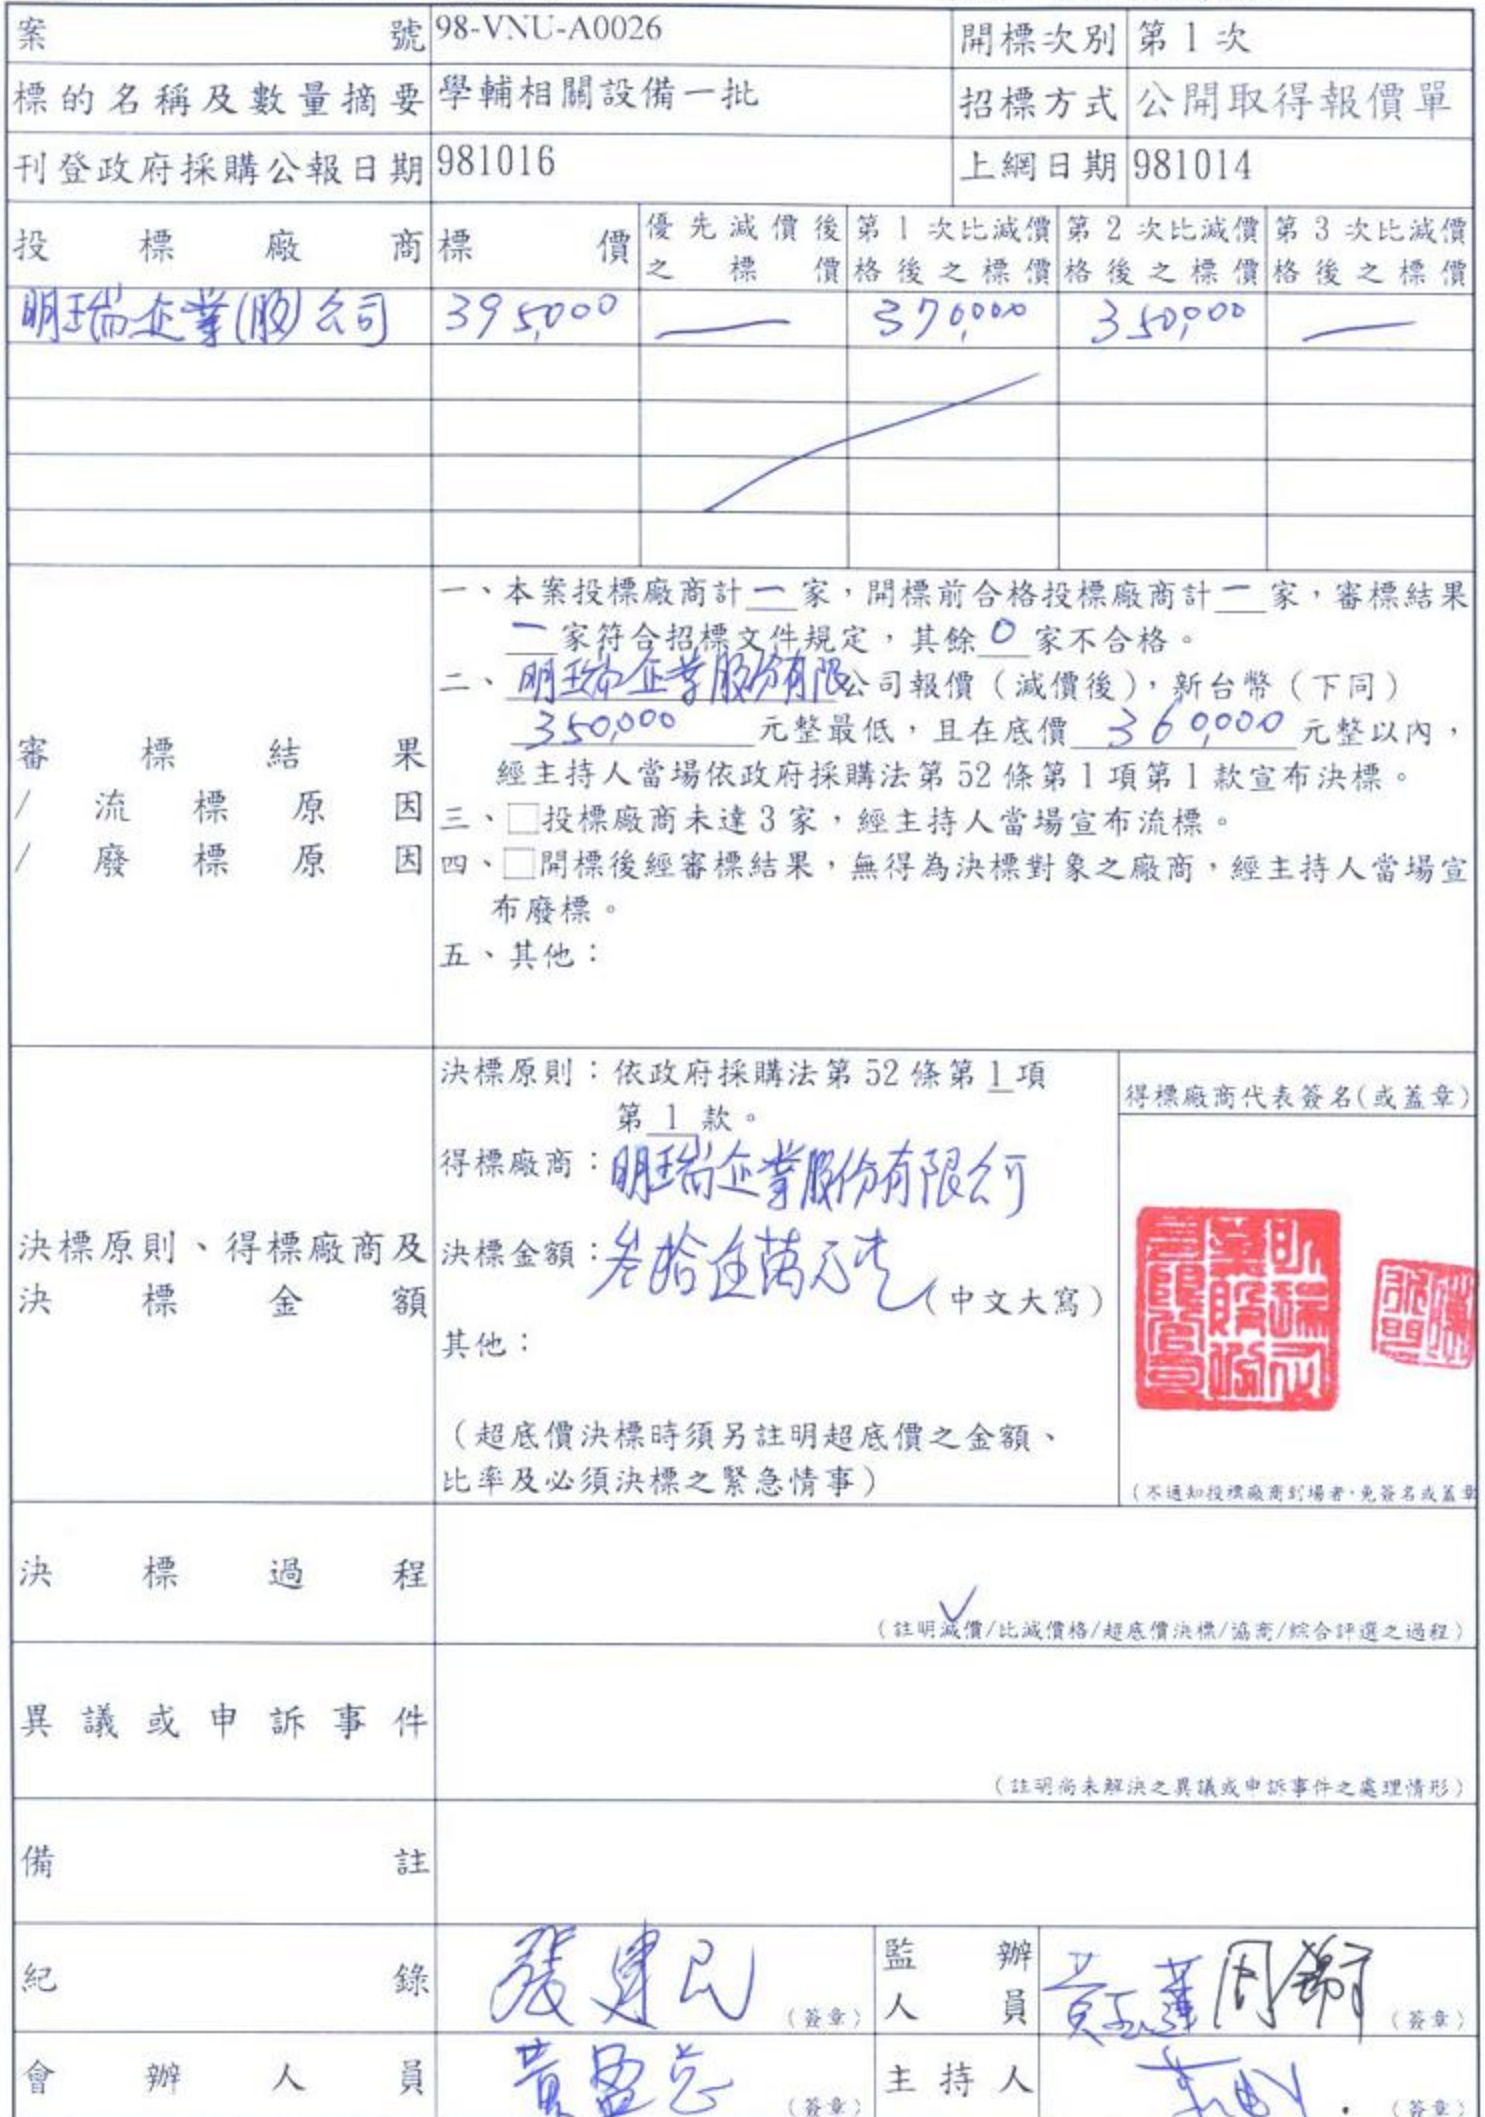 案號 98-VNU-A0026 開標次別 第1次
標的名稱及數量摘要 學輔相關設備一批 招標方式 公開取得報價單
刊登政府採購公報日期 981016 上網日期 981014
投標廠商 標價 優先減價後之標價 第1次比減價格後之標價 第2次比減價格後之標價 第3次比減價格後之標價
明瑞企業(股)公司 395,000 — 370,000 350,000 —
審標結果
/流標原因
/廢標原因
一、本案投標廠商計一家，開標前合格投標廠商計一家，審標結果
一家符合招標文件規定，其餘0家不合格。
二、明瑞企業股份有限公司報價（減價後），新台幣（下同）
350,000元整最低，且在底價360,000元整以內，
經主持人當場依政府採購法第52條第1項第1款宣布決標。
三、□投標廠商未達3家，經主持人當場宣布流標。
四、□開標後經審標結果，無得為決標對象之廠商，經主持人當場宣
布廢標。
五、其他：
決標原則、得標廠商及
決標金額
決標原則：依政府採購法第52條第1項
第1款。
得標廠商：明瑞企業股份有限公司
決標金額：叁拾伍萬元整(中文大寫)
其他：
（超底價決標時須另註明超底價之金額、
比率及必須決標之緊急情事）
得標廠商代表簽名(或蓋章)
明瑞企業股份有限公司
（不通知投標廠商到場者，免簽名或蓋章
決標過程
（註明減價/比減價格/超底價決標/協商/綜合評選之過程）
異議或申訴事件
（註明尚未解決之異議或申訴事件之處理情形）
備註
紀錄 張建民 （簽章） 監辦人員 （簽章）
會辦人員 （簽章） 主持人 （簽章）